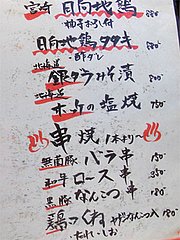 宮崎 日向地鶏 880
柚子おろし付
日向地鶏タタキ 880
酢ダレ
北海道
銀ダラみそ漬 880
北海道
ホッケの塩焼 780
♨串焼♨ 1本より
無菌豚 バラ串 180
和牛 ロース串 350
黒豚 なんこつ串 180
鶏つくね ヤゲンなんこつ入 180
たれ・しお